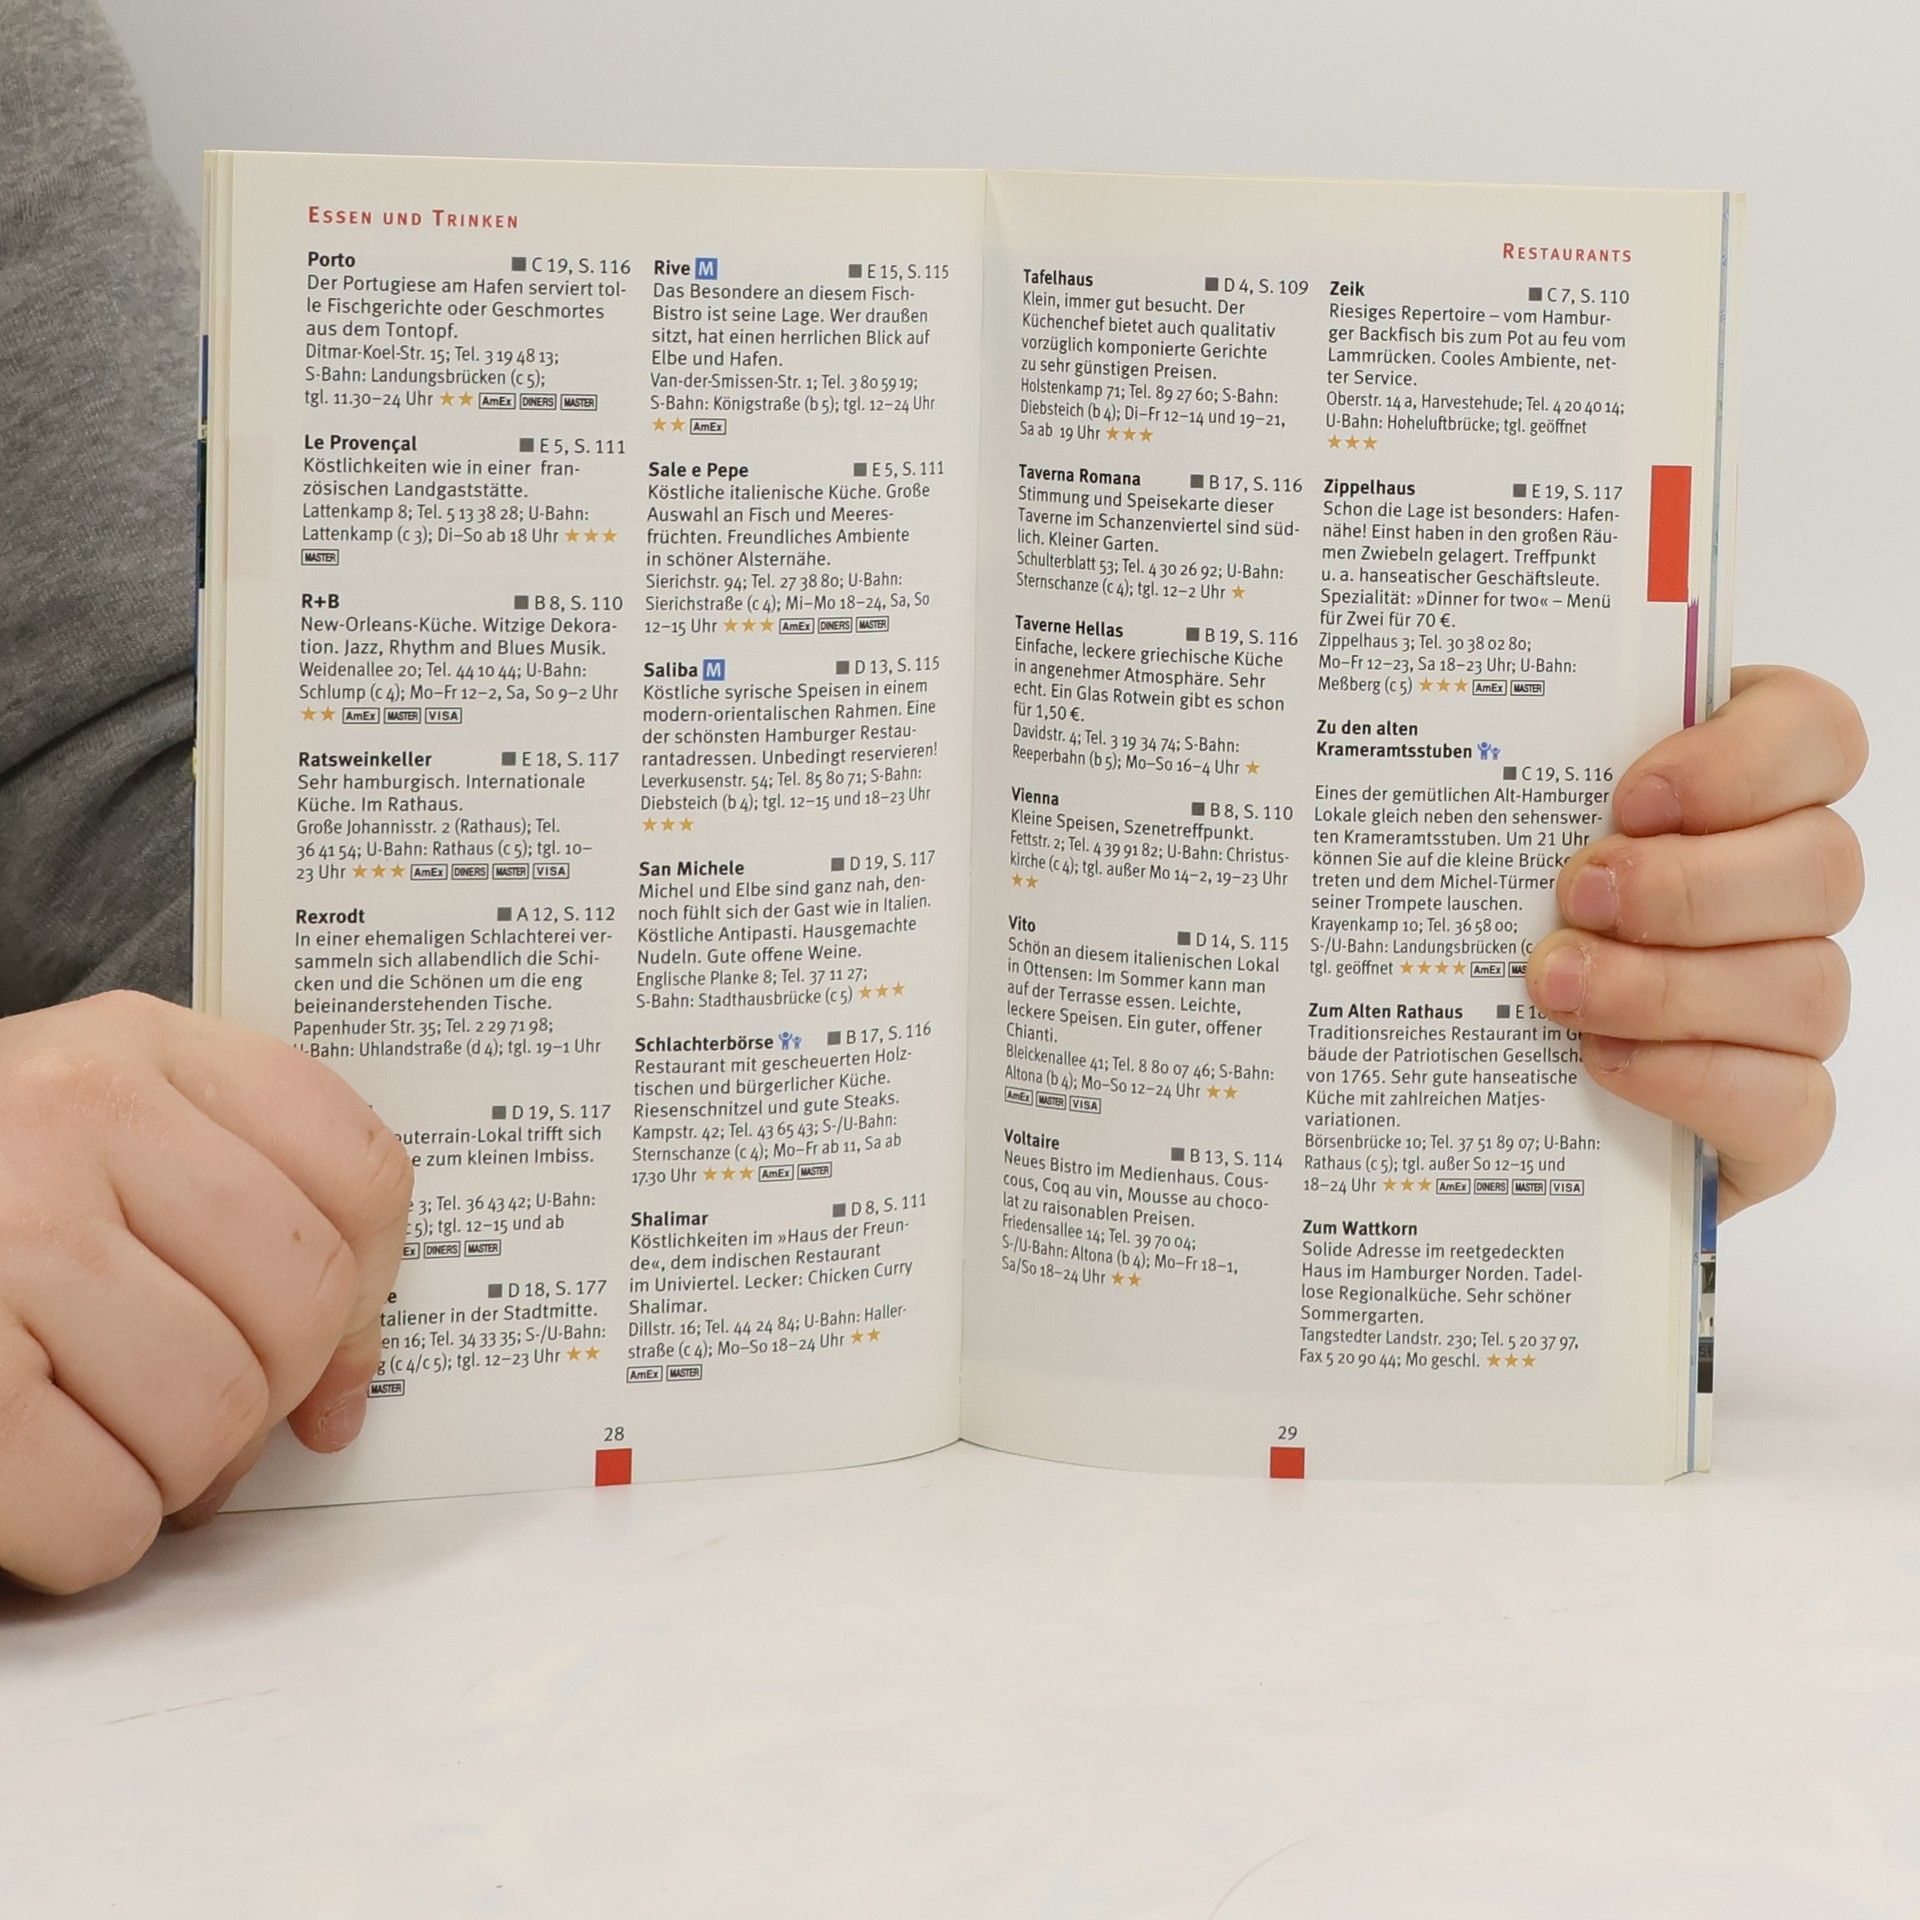 ESSEN UND TRINKEN
Porto ■ C 19, S. 116
Der Portugiese am Hafen serviert tol-
le Fischgerichte oder Geschmortes
aus dem Tontopf.
Ditmar-Koel-Str. 15; Tel. 3 19 48 13;
S-Bahn: Landungsbrücken (c 5);
tgl. 11.30–24 Uhr ★★ AmEx DINERS MASTER
Le Provençal ■ E 5, S. 111
Köstlichkeiten wie in einer fran-
zösischen Landgaststätte.
Lattenkamp 8; Tel. 5 13 38 28; U-Bahn:
Lattenkamp (c 3); Di–So ab 18 Uhr ★★★
MASTER
R+B ■ B 8, S. 110
New-Orleans-Küche. Witzige Dekora-
tion. Jazz, Rhythm and Blues Musik.
Weidenallee 20; Tel. 44 10 44; U-Bahn:
Schlump (c 4); Mo–Fr 12–2, Sa, So 9–2 Uhr
★★ AmEx MASTER VISA
Ratsweinkeller ■ E 18, S. 117
Sehr hamburgisch. Internationale
Küche. Im Rathaus.
Große Johannisstr. 2 (Rathaus); Tel.
36 41 54; U-Bahn: Rathaus (c 5); tgl. 10–
23 Uhr ★★★ AmEx DINERS MASTER VISA
Rexrodt ■ A 12, S. 112
In einer ehemaligen Schlachterei ver-
sammeln sich allabendlich die Schi-
cken und die Schönen um die eng
beieinanderstehenden Tische.
Papenhuder Str. 35; Tel. 2 29 71 98;
U-Bahn: Uhlandstraße (d 4); tgl. 19–1 Uhr
■ D 19, S. 117
trifft sich
zum kleinen Imbiss.
3; Tel. 36 43 42; U-Bahn:
tgl. 12–15 und ab
DINERS MASTER
■ D 18, S. 177
in der Stadtmitte.
16; Tel. 34 33 35; S-/U-Bahn:
(c 4/c 5); tgl. 12–23 Uhr ★★
MASTER
Rive M ■ E 15, S. 115
Das Besondere an diesem Fisch-
Bistro ist seine Lage. Wer draußen
sitzt, hat einen herrlichen Blick auf
Elbe und Hafen.
Van-der-Smissen-Str. 1; Tel. 3 80 59 19;
S-Bahn: Königstraße (b 5); tgl. 12–24 Uhr
★★ AmEx
Sale e Pepe ■ E 5, S. 111
Köstliche italienische Küche. Große
Auswahl an Fisch und Meeres-
früchten. Freundliches Ambiente
in schöner Alsternähe.
Sierichstr. 94; Tel. 27 38 80; U-Bahn:
Sierichstraße (c 4); Mi–Mo 18–24, Sa, So
12–15 Uhr ★★★ AmEx DINERS MASTER
Saliba M ■ D 13, S. 115
Köstliche syrische Speisen in einem
modern-orientalischen Rahmen. Eine
der schönsten Hamburger Restau-
rantadressen. Unbedingt reservieren!
Leverkusenstr. 54; Tel. 85 80 71; S-Bahn:
Diebsteich (b 4); tgl. 12–15 und 18–23 Uhr
★★★
San Michele ■ D 19, S. 117
Michel und Elbe sind ganz nah, den-
noch fühlt sich der Gast wie in Italien.
Köstliche Antipasti. Hausgemachte
Nudeln. Gute offene Weine.
Englische Planke 8; Tel. 37 11 27;
S-Bahn: Stadthausbrücke (c 5) ★★★
Schlachterbörse ■ B 17, S. 116
Restaurant mit gescheuerten Holz-
tischen und bürgerlicher Küche.
Riesenschnitzel und gute Steaks.
Kampstr. 42; Tel. 43 65 43; S-/U-Bahn:
Sternschanze (c 4); Mo–Fr ab 11, Sa ab
17.30 Uhr ★★★ AmEx MASTER
Shalimar ■ D 8, S. 111
Köstlichkeiten im »Haus der Freun-
de«, dem indischen Restaurant
im Univiertel. Lecker: Chicken Curry
Shalimar.
Dillstr. 16; Tel. 44 24 84; U-Bahn: Haller-
straße (c 4); Mo–So 18–24 Uhr ★★
AmEx MASTER
28
RESTAURANTS
Tafelhaus ■ D 4, S. 109
Klein, immer gut besucht. Der
Küchenchef bietet auch qualitativ
vorzüglich komponierte Gerichte
zu sehr günstigen Preisen.
Holstenkamp 71; Tel. 89 27 60; S-Bahn:
Diebsteich (b 4); Di–Fr 12–14 und 19–21,
Sa ab 19 Uhr ★★★
Taverna Romana ■ B 17, S. 116
Stimmung und Speisekarte dieser
Taverne im Schanzenviertel sind süd-
lich. Kleiner Garten.
Schulterblatt 53; Tel. 4 30 26 92; U-Bahn:
Sternschanze (c 4); tgl. 12–2 Uhr ★
Taverne Hellas ■ B 19, S. 116
Einfache, leckere griechische Küche
in angenehmer Atmosphäre. Sehr
echt. Ein Glas Rotwein gibt es schon
für 1,50 €.
Davidstr. 4; Tel. 3 19 34 74; S-Bahn:
Reeperbahn (b 5); Mo–So 16–4 Uhr ★
Vienna ■ B 8, S. 110
Kleine Speisen, Szenetreffpunkt.
Fettstr. 2; Tel. 4 39 91 82; U-Bahn: Christus-
kirche (c 4); tgl. außer Mo 14–2, 19–23 Uhr
★★
Vito ■ D 14, S. 115
Schön an diesem italienischen Lokal
in Ottensen: Im Sommer kann man
auf der Terrasse essen. Leichte,
leckere Speisen. Ein guter, offener
Chianti.
Bleickenallee 41; Tel. 8 80 07 46; S-Bahn:
Altona (b 4); Mo–So 12–24 Uhr ★★
AmEx MASTER VISA
Voltaire ■ B 13, S. 114
Neues Bistro im Medienhaus. Cous-
cous, Coq au vin, Mousse au choco-
lat zu raisonablen Preisen.
Friedensallee 14; Tel. 39 70 04;
S-/U-Bahn: Altona (b 4); Mo–Fr 18–1,
Sa/So 18–24 Uhr ★★
Zeik ■ C 7, S. 110
Riesiges Repertoire – vom Hambur-
ger Backfisch bis zum Pot au feu vom
Lammrücken. Cooles Ambiente, net-
ter Service.
Oberstr. 14 a, Harvestehude; Tel. 4 20 40 14;
U-Bahn: Hoheluftbrücke; tgl. geöffnet
★★★
Zippelhaus ■ E 19, S. 117
Schon die Lage ist besonders: Hafen-
nähe! Einst haben in den großen Räu-
men Zwiebeln gelagert. Treffpunkt
u. a. hanseatischer Geschäftsleute.
Spezialität: »Dinner for two« – Menü
für Zwei für 70 €.
Zippelhaus 3; Tel. 30 38 02 80;
Mo–Fr 12–23, Sa 18–23 Uhr; U-Bahn:
Meßberg (c 5) ★★★ AmEx MASTER
Zu den alten
Krameramtsstuben
■ C 19, S. 116
Eines der gemütlichen Alt-Hamburger
Lokale gleich neben den sehenswer-
ten Krameramtsstuben. Um 21 Uhr
können Sie auf die kleine Brücke
treten und dem Michel-Türmer
seiner Trompete lauschen.
Krayenkamp 10; Tel. 36 58 00;
S-/U-Bahn: Landungsbrücken
tgl. geöffnet ★★★★ AmEx
Zum Alten Rathaus ■
Traditionsreiches Restaurant im
bäude der Patriotischen
von 1765. Sehr gute hanseatische
Küche mit zahlreichen Matjes-
variationen.
Börsenbrücke 10; Tel. 37 51 89 07; U-Bahn:
Rathaus (c 5); tgl. außer So 12–15 und
18–24 Uhr ★★★ AmEx DINERS MASTER VISA
Zum Wattkorn
Solide Adresse im reetgedeckten
Haus im Hamburger Norden. Tadel-
lose Regionalküche. Sehr schöner
Sommergarten.
Tangstedter Landstr. 230; Tel. 5 20 37 97,
Fax 5 20 90 44; Mo geschl. ★★★
29